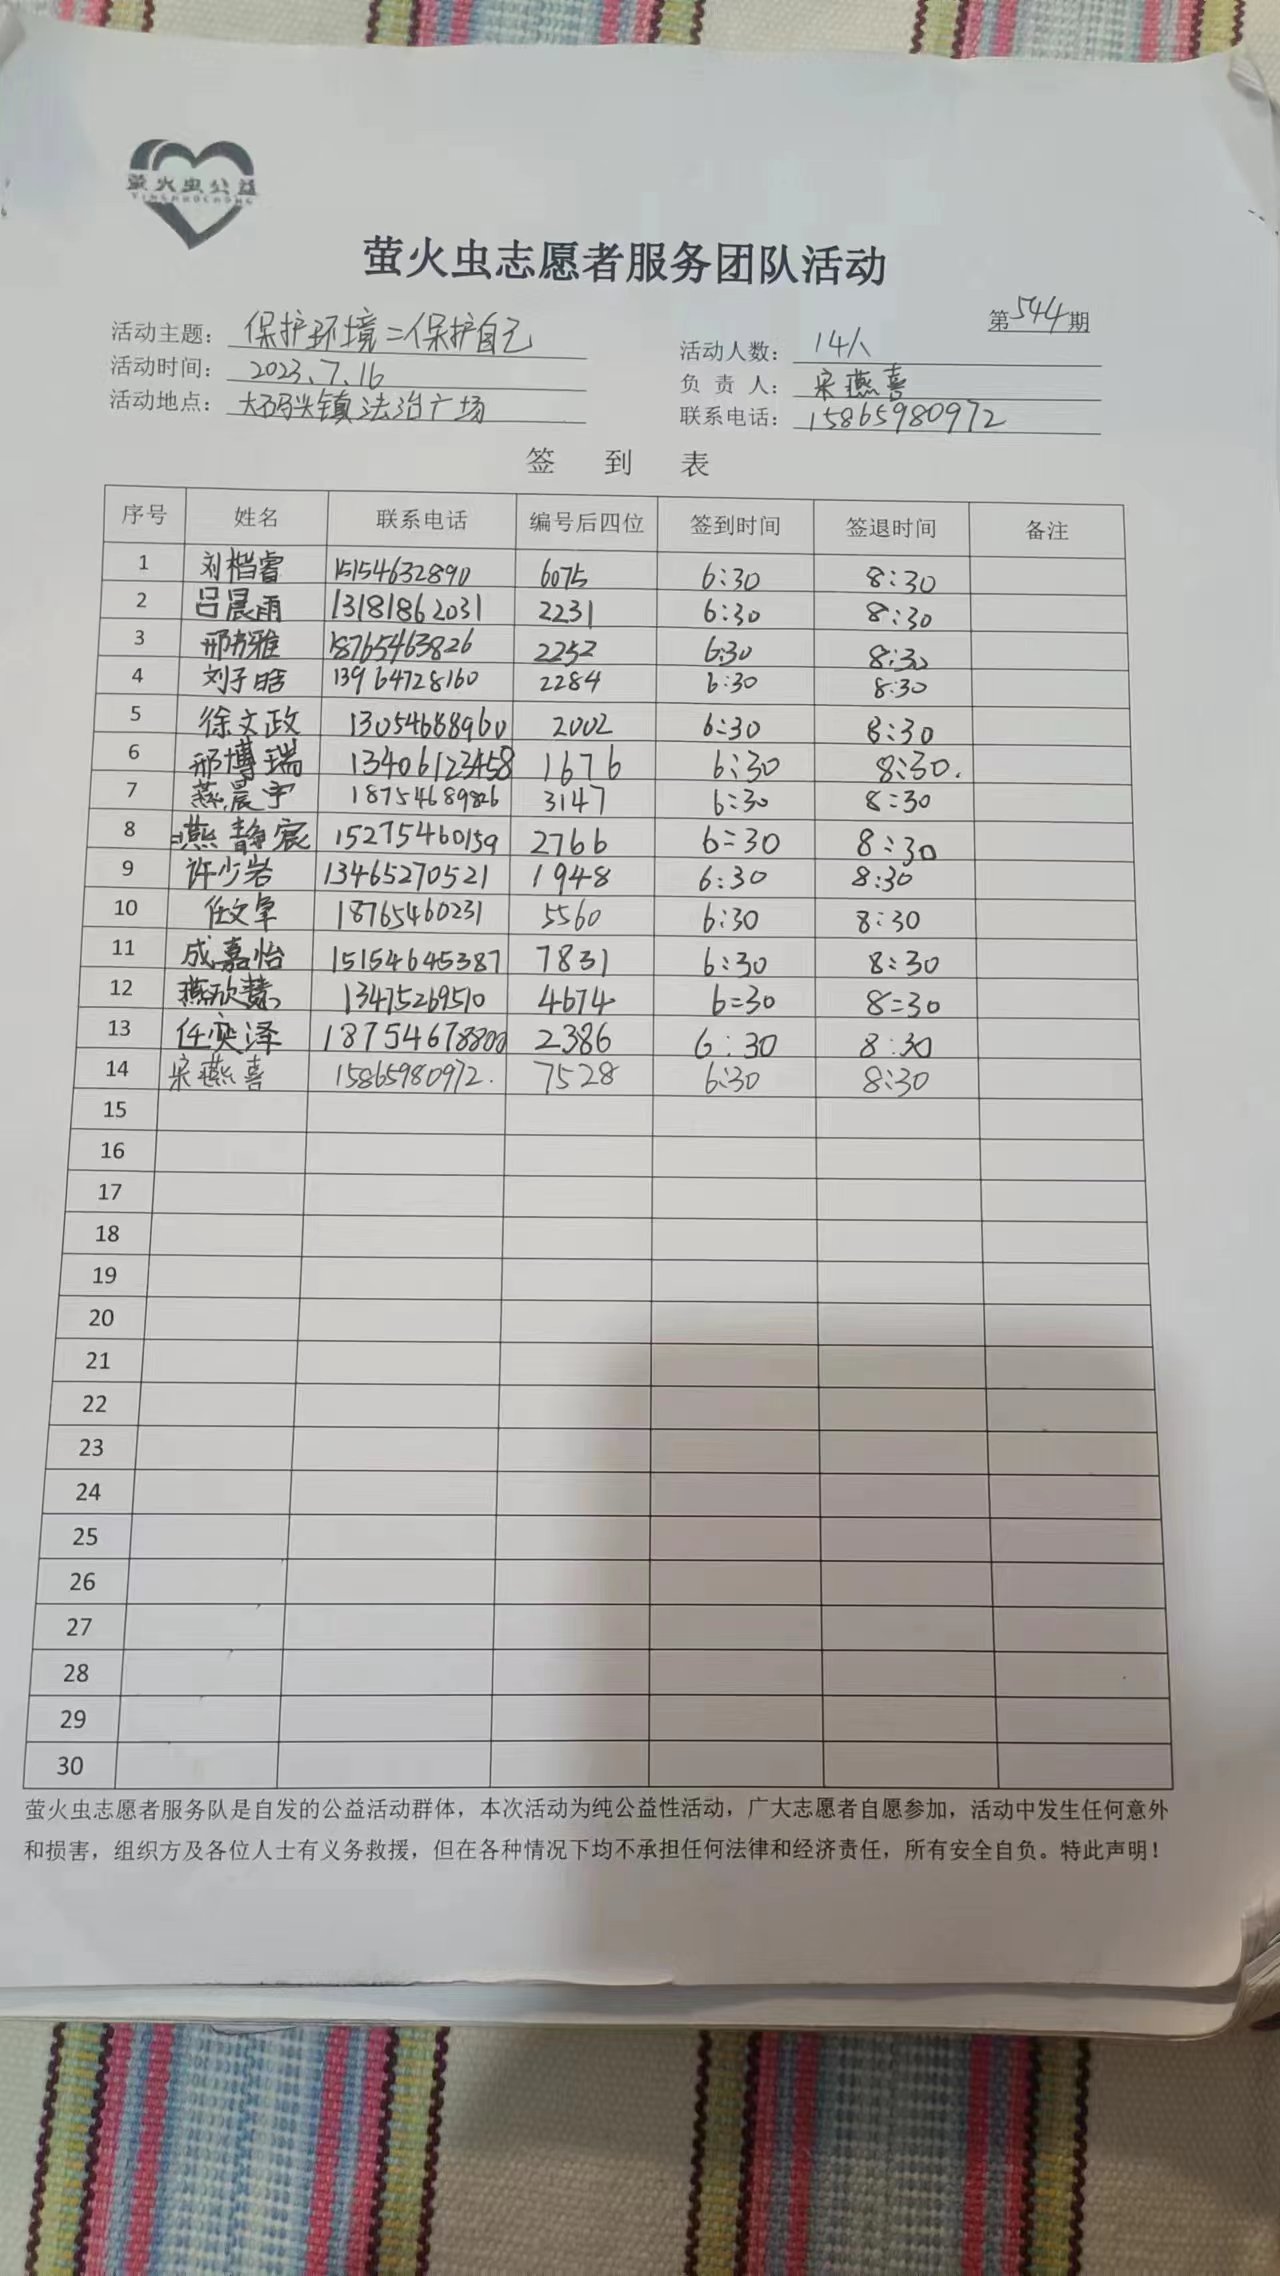 萤火虫公益
YINGHUOCHONG
萤火虫志愿者服务团队活动
第544期
活动主题: 保护环境=保护自己
活动人数: 14人
活动时间: 2023、7、16
负责人: 宋燕喜
活动地点: 大码头镇法治广场
联系电话: 15865980972
签到表
序号 姓名 联系电话 编号后四位 签到时间 签退时间 备注
1 刘楷睿 15154632890 6075 6:30 8:30
2 吕晨雨 13181862031 2231 6:30 8:30
3 邢书雅 18765463826 2252 6:30 8:30
4 刘子晗 13964728160 2284 6:30 8:30
5 徐文政 13054688960 2002 6:30 8:30
6 邢博瑞 13406123458 1676 6:30 8:30.
7 燕晨宇 18754689826 3147 6:30 8:30
8 燕静宸 15275460159 2766 6:30 8:30
9 许少岩 13465270521 1948 6:30 8:30
10 任文 18765460231 5560 6:30 8:30
11 成嘉怡 15154645387 7831 6:30 8:30
12 燕欣慧 13475269510 4674 6=30 8=30
13 任奕泽 18754678800 2386 6:30 8:30
14 宋燕喜 15865980972. 7528 6:30 8:30
15
16
17
18
19
20
21
22
23
24
25
26
27
28
29
30
萤火虫志愿者服务队是自发的公益活动群体，本次活动为纯公益性活动，广大志愿者自愿参加，活动中发生任何意外
和损害，组织方及各位人士有义务救援，但在各种情况下均不承担任何法律和经济责任，所有安全自负。特此声明！